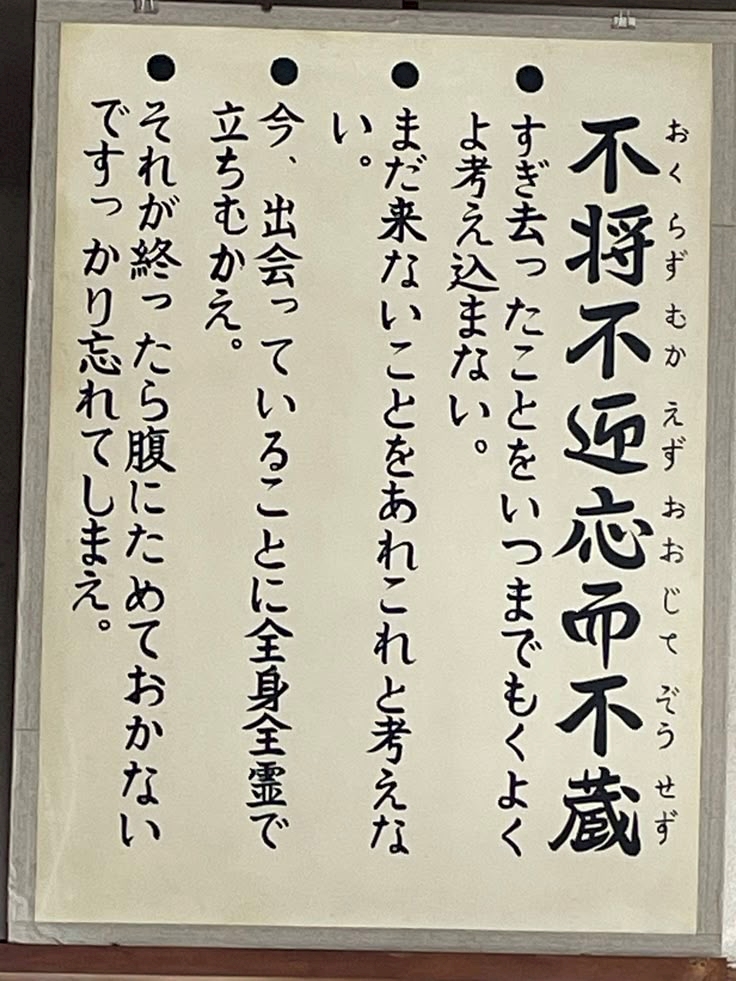 おくらずむかえずおおじてぞうせず
不将不迎応而不蔵
● すぎ去ったことをいつまでもくよく
よ考え込まない。
● まだ来ないことをあれこれと考えな
い。
● 今、出会っていることに全身全霊で
立ちむかえ。
● それが終ったら腹にためておかない
ですっかり忘れてしまえ。